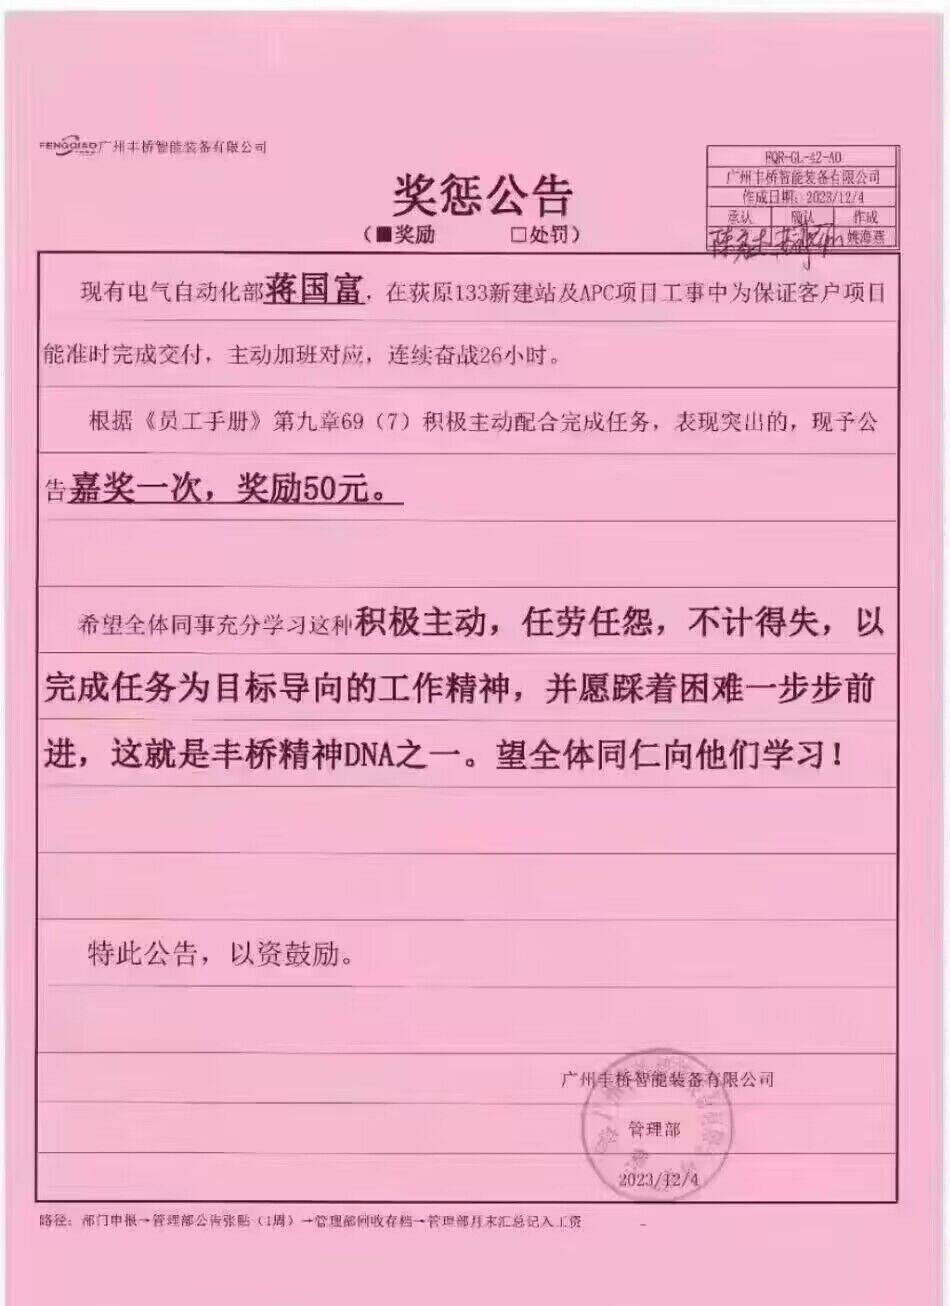 FENGQIAO广州丰桥智能装备有限公司
FQR-GL-42-A0
广州丰桥智能装备有限公司
作成日期：2023/12/4
承认 确认 作成
姚海燕
奖惩公告
（■奖励 □处罚）
现有电气自动化部蒋国富，在荻原133新建站及APC项目工事中为保证客户项目
能准时完成交付，主动加班对应，连续奋战26小时。
根据《员工手册》第九章69（7）积极主动配合完成任务，表现突出的，现予公
告嘉奖一次，奖励50元。
希望全体同事充分学习这种积极主动，任劳任怨，不计得失，以
完成任务为目标导向的工作精神，并愿踩着困难一步步前
进，这就是丰桥精神DNA之一。望全体同仁向他们学习！
特此公告，以资鼓励。
广州丰桥智能装备有限公司
管理部
2023/12/4
路径：部门申报→管理部公告张贴（1周）→管理部回收存档→管理部月末汇总记入工资